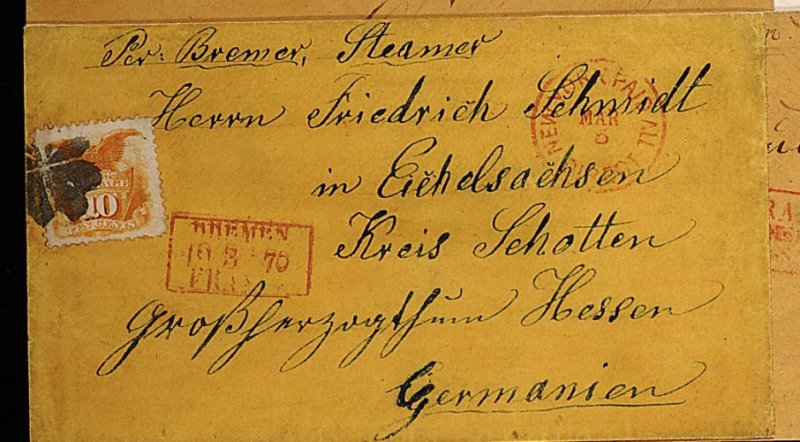 Per Bremer, Steamer
Herrn Friedrich Schmidt
in Eichelsachsen
Kreis Schotten
Großherzogthum Hessen
Germanien
NEW YORK PAID ALL
MAR
5
10
TEN CENTS
BREMEN
19 3 70
FRANCO